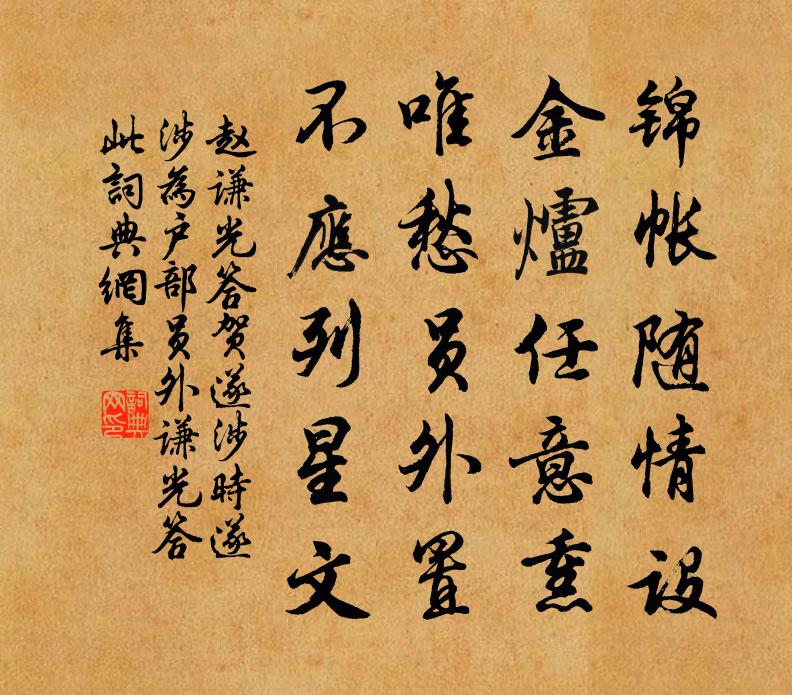 锦帐随情设
金爐任意熏
唯愁员外置
不應列星文
赵谦光答贺遂涉時遂
涉為户部员外谦光答
此詞典網集
詞典
网印